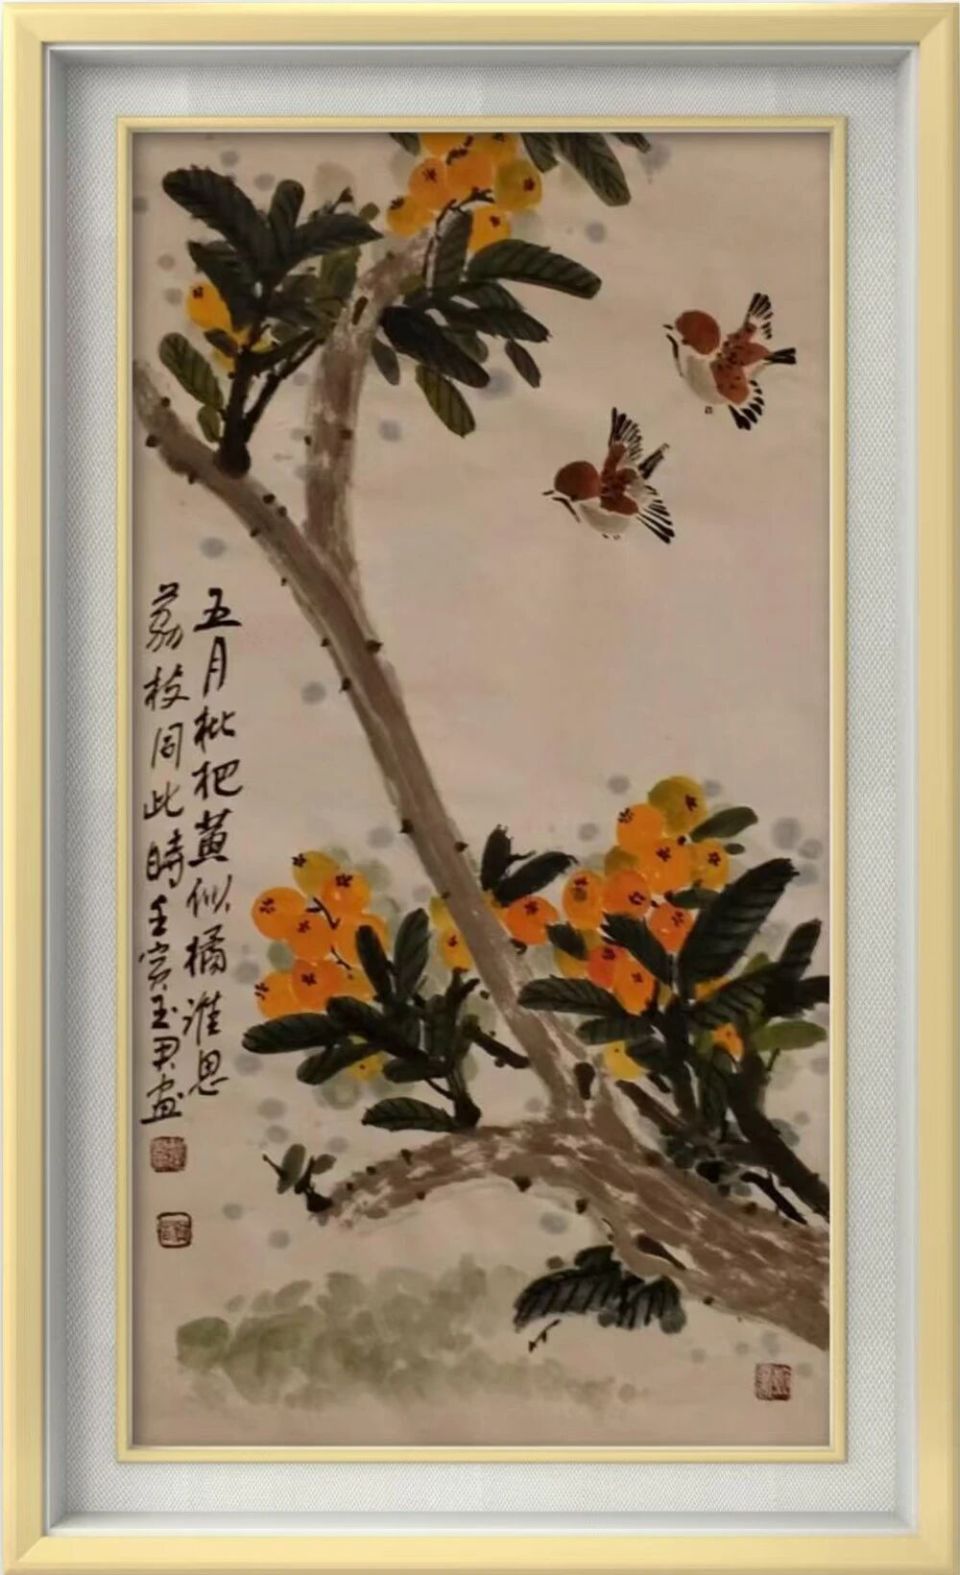 五月枇杷黄似橘谁思
荔枝同此時壬寅玉君画